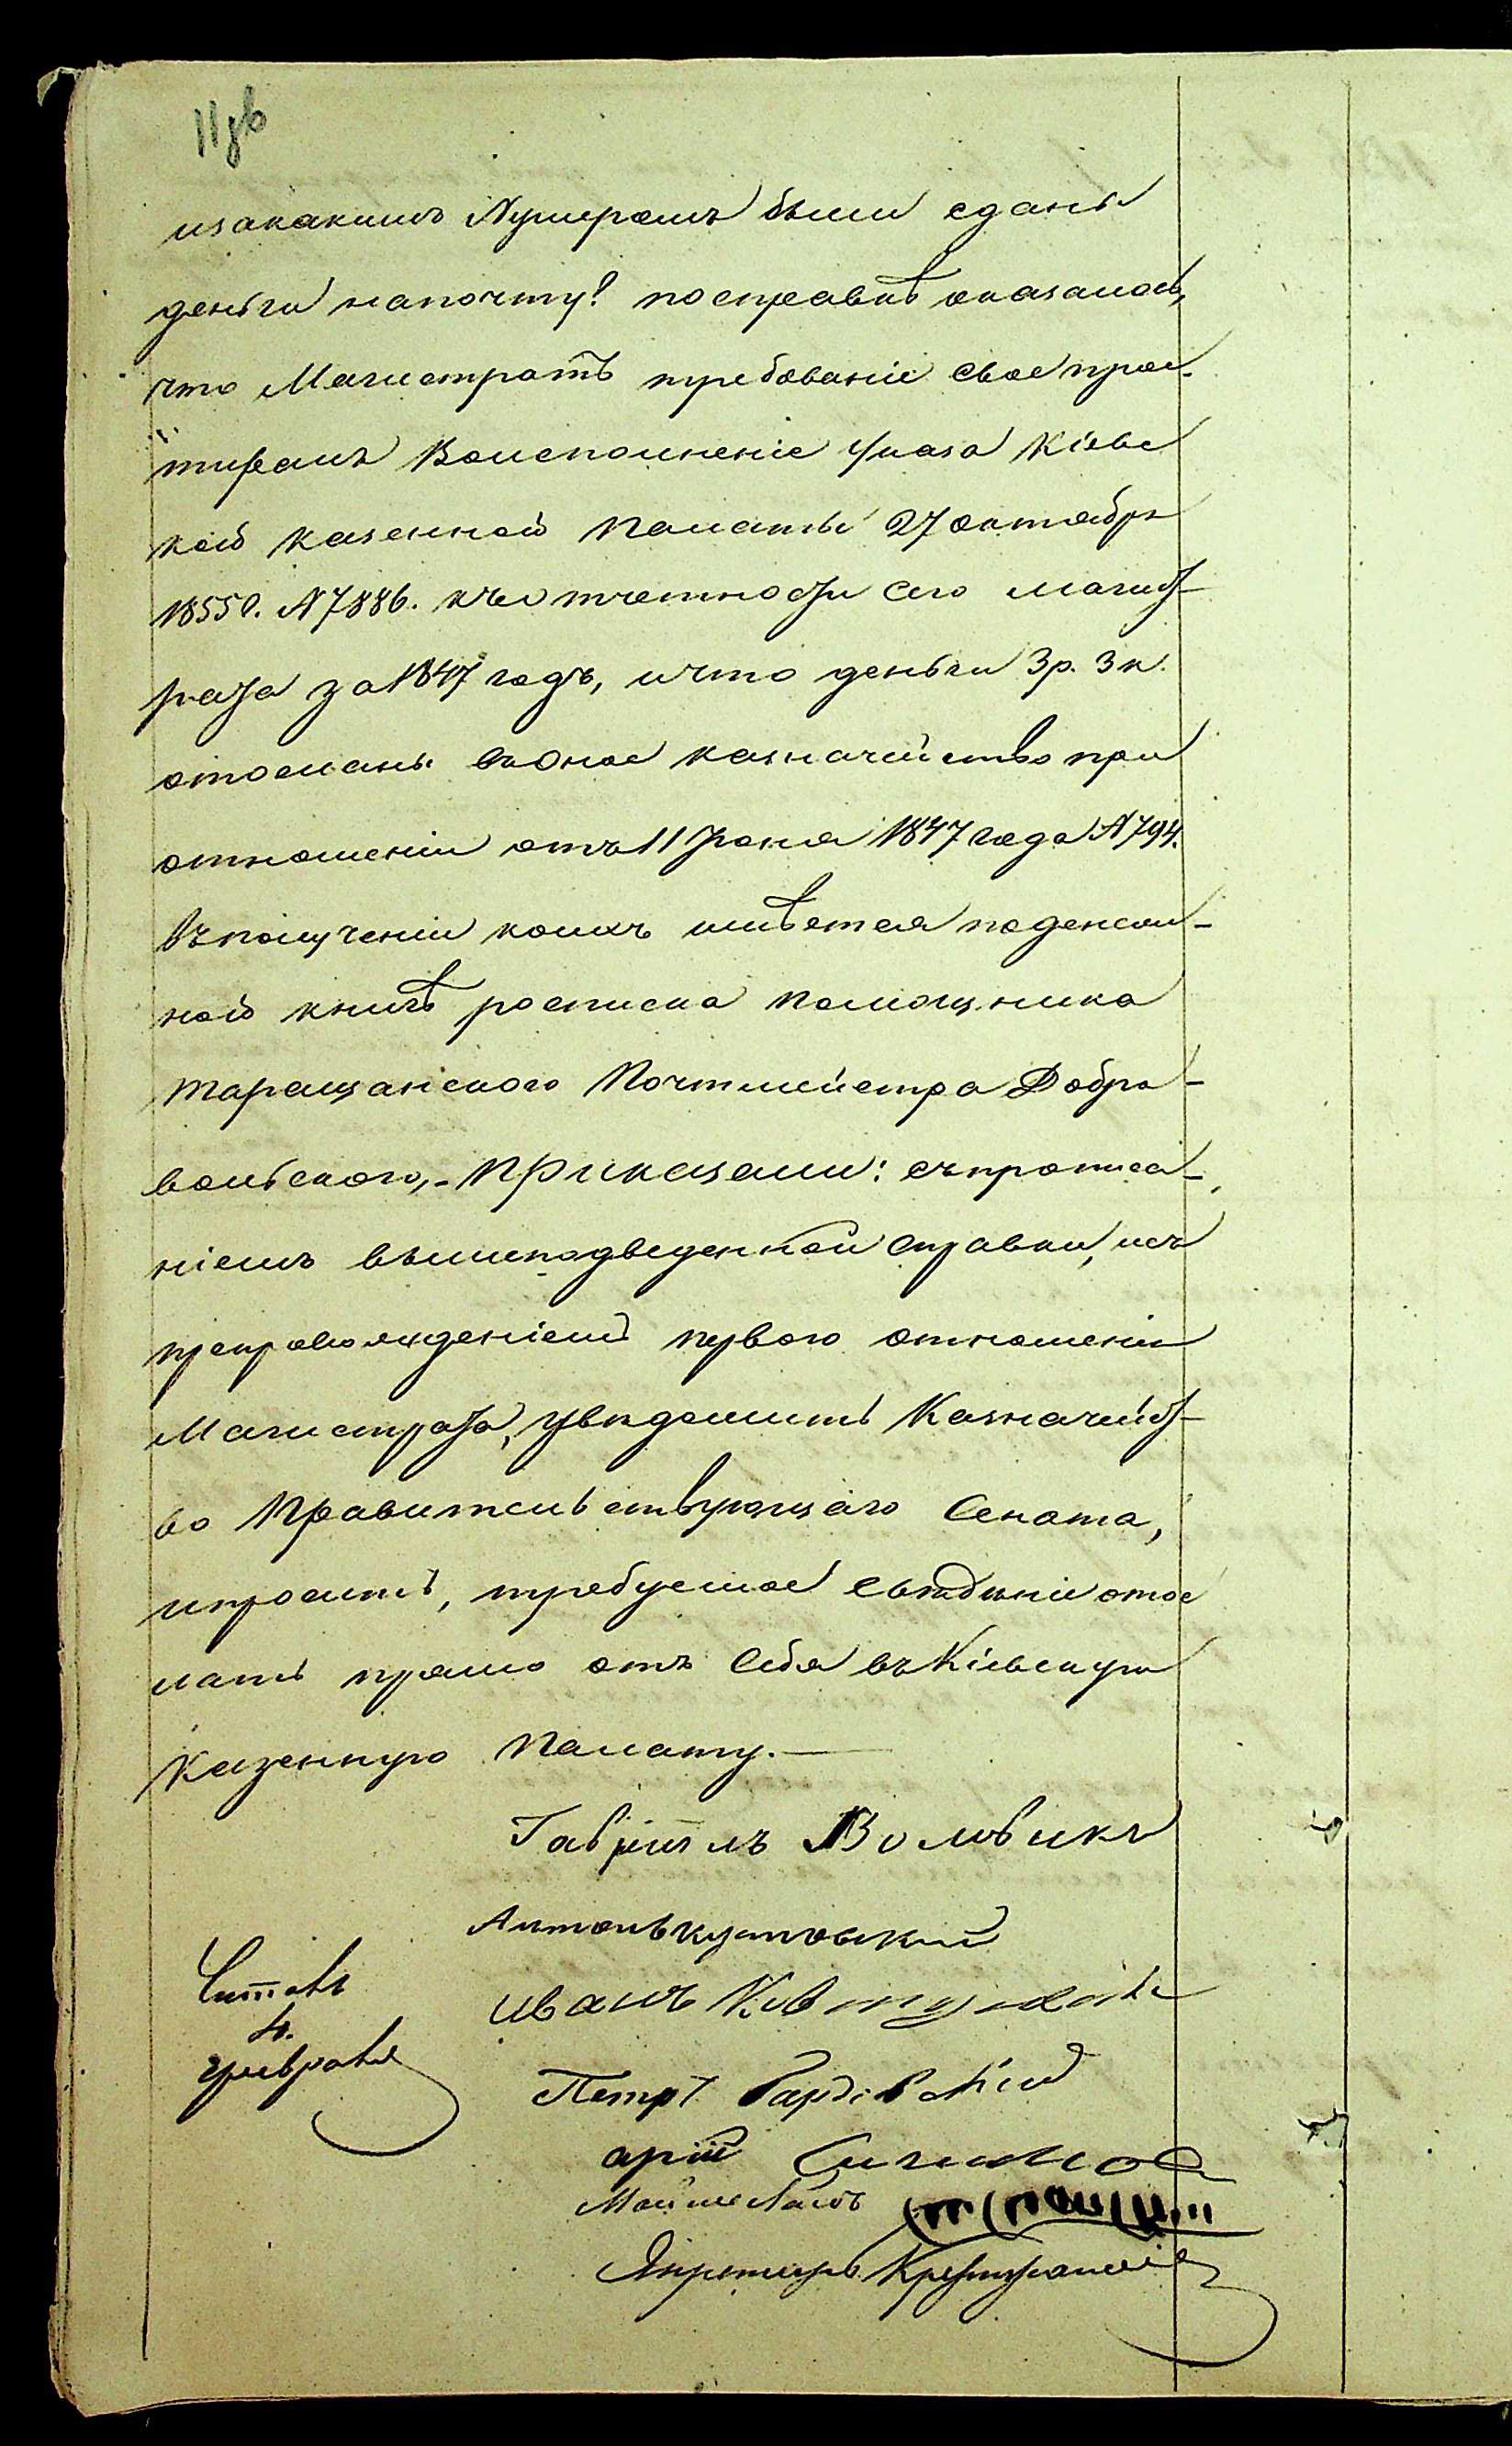 11 об
изакакимъ Нумеромъ были сданы
деньги напочту? посправкѣ оказалось,
что Магистратъ требованіе свое прои-
Воисполненіе Указа Кіевс
кой казенной Палаты 27 октября
1855 г. № 7886. къотчетности сего магист-
рата за 1847 годъ, ичто деньги 3 р. 3 к.
отосланы въоное казначейство при
отношеніи отъ 11 Іюня 1847 года № 794.
въполученіи коихъ имѣется
ной книгѣ росписка Помощника
Таращанскаго Почтмейстера Добро-
вольскаго,- Приказали: съпрописа-
ніемъ вышеподведенной справки, исъ
препровожденіемъ первого отношенія
Магистрата, увѣдомить Казначейст-
во Правительствующаго Сената,
ипросить, требуемое свѣдѣніе отос
лать прямо отъ себя въКіевскую
Казенную Палату.—
Гавріилъ
Антонъ
Читалъ
Иванъ
4.
февраля
Петръ
Секретарь